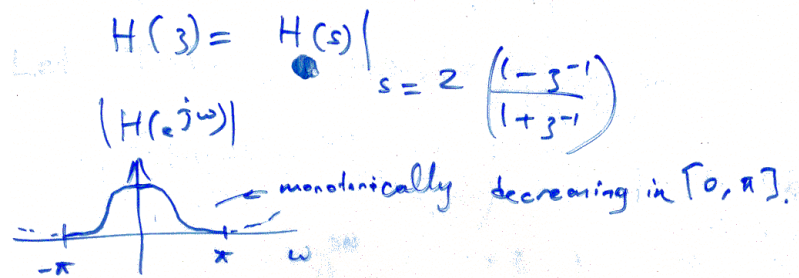 H(z) = H(s)|
s = 2 ((1 - z^-1)/(1 + z^-1))
|H(e^jω)|
← monotonically decreasing in [0, π].
-π π ω